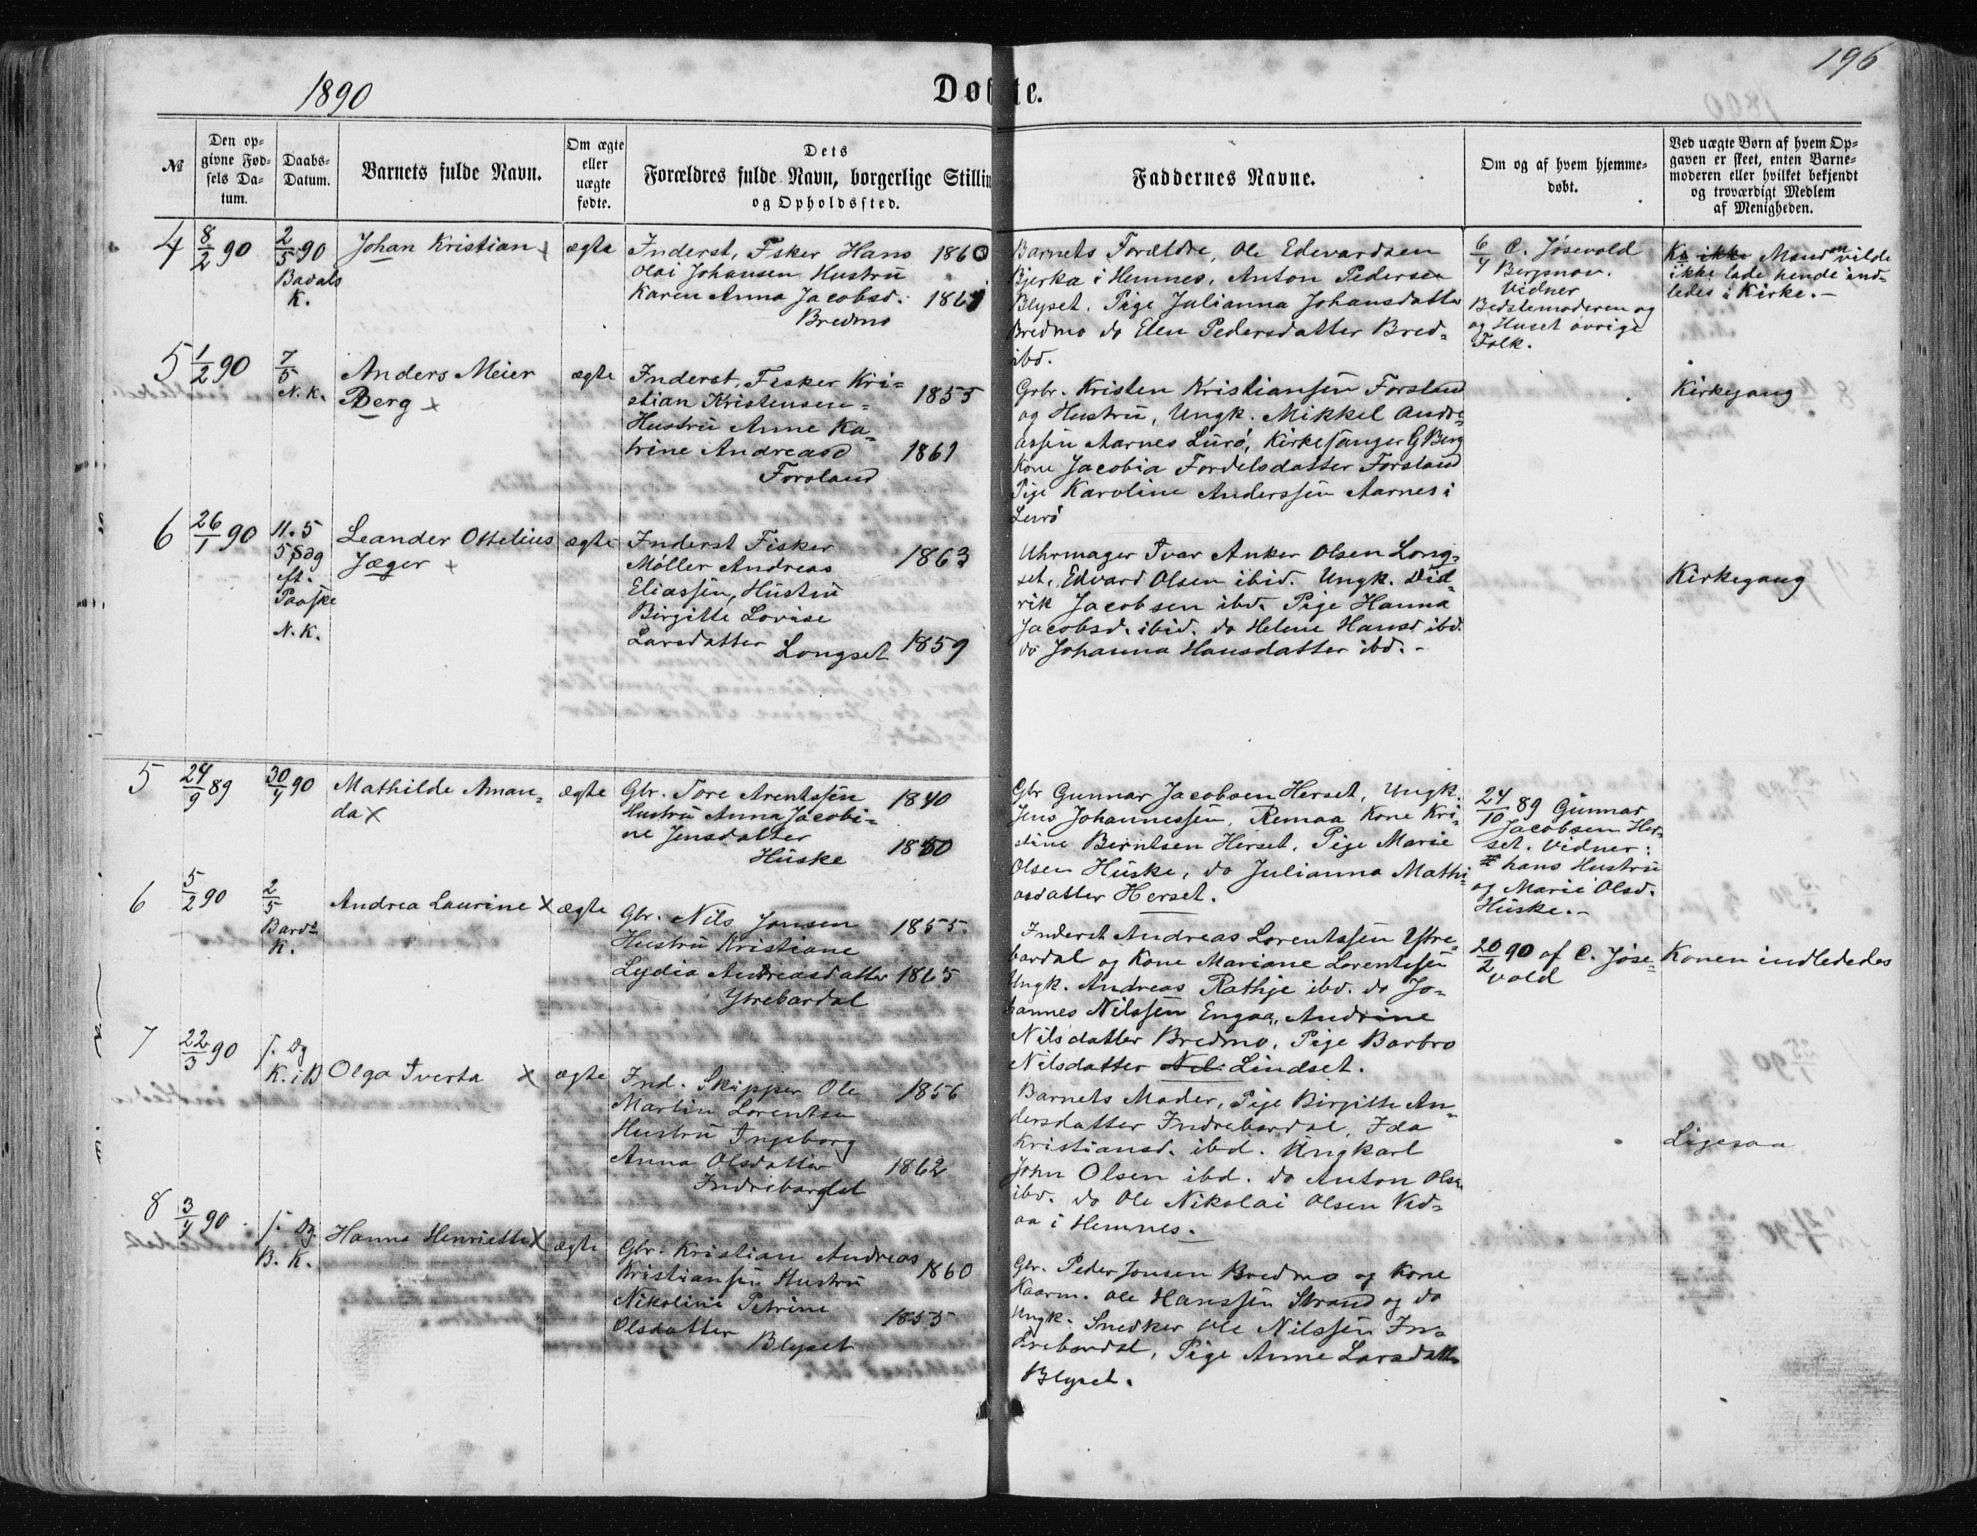 196
1890
Døbte.
№
Den op-
givne Fød-
sels Da-
tum.
Daabs-
Datum.
Barnets fulde Navn.
Om ægte
eller
uægte
fødte.
Dets
Forældres fulde Navn, borgerlige Stillin
og Opholdssted.
Faddernes Navne.
Om og af hvem hjemme-
døbt.
Ved uægte Børn af hvem Op-
gaven er skeet, enten Barne-
moderen eller hvilket bekjendt
og troværdigt Medlem
af Menigheden.
4
8/2 90
2/5 90
Badals
K.
Johan Kristian
ægte
Inderst, Fisker Hans 1860
Olai Johansen Hustru
Karen Anna Jacobsd. 1867
Bredmo
Barnets Forældre, Ole Edevardsen
Bjerka i Hemnes, Anton Pedersen
Blyset, Pige Julianna Johansdatter
Bredmo do Elen Pedersdatter Bred-
ibd.
6/4 C. Jøsevold
Bergsnov.
Vidner
Bedstemoderen og
og Huset øvrige
Folk.
Ko ikke Manden vilde
ikke lade hende ind-
ledes i Kirke.-
5
1/2 90
7/5
N. K.
Anders Meier
Berg
ægte
Inderst, Fisker Kri-
stian Kristensen 1855
Hustru Anne Ka-
trine Andreasd 1861
Forsland
Grbr. Kristen Kristiansen Forsland
og Hustru, Ungk. Mikkel Andre-
assen Aarnes Lurø, Kirkesanger G Berg
Kone Jacobia Fordelsdatter Forsland
Pige Karoline Anderssen Aarnes i
Lurø
Kirkegang
6
26/1 90
11. 5
5 Sdg
eft.
Paaske
N. K.
Leander Ottelius
Jæger
ægte
Inderst Fisker
Møller Andreas 1863
Eliassen, Hustru
Birgitte Lovise
Larsdatter Longset 1859
Uhrmager Ivar Anker Olsen Long-
set, Edvard Olsen ibid. Ungk. Did-
rik Jacobsen ibd. Pige Hanna
Jacobsd. ibid. do Helene Hansd ibd.
do Johanna Hansdatter ibd.-
Kirkegang
5
24/9 89
30/4 90
Mathilde Aman-
da
ægte
Gbr. Tore Arentssen 1840
Hustru Anna Jacobi-
ne Jensdatter
Huske 1850
Gbr Gunnar Jacobsen Herset, Ungk.
Jens Johannessen, Remaa Kone Kri-
stine Berntsen Herset, Pige Marie
Olsen Huske, do Julianna Mathi-
asdatter Herset.
24/10 89 Gunnar
Jacobsen Her-
set. Vidner:
hans Hustru
og Marie Olsd.
Huske.-
6
5/2 90
2/5
Bard.
K.
Andrea Laurine
ægte
Gbr. Nils Jonsen 1855
Hustru Kristiane
Lydia Andreasdatter 1865
Ytrebardal
Inderst Andreas Lorentssen Ytre-
bardal og Kone Mariane Lorentssen
Ungk. Andreas Rathje ibd. do Jo-
hannes Nilssen Engaa, Andrine
Nilsdatter Bredmo, Pige Barbro
Nilsdatter Lindset.
20/2 90 af C. Jøse-
vold
Konen indlededes
7
22/3 90
s. Dg
K. i B
Olga Iverta
ægte
Ind. Skipper Ole 1856
Martin Lorentsen
Hustru Ingeborg
Anna Olsdatter 1862
Indrebardal
Barnets Moder, Pige Birgitte An-
dersdatter Indrebardal, Ida
Kristiansd. ibd. Ungkarl
John Olsen ibd. do Anton Olsen
ibd. do Ole Nikolai Olsen Vid-
aa i Hemnes.
Ligesaa
8
3/4 90
s. Dg.
B. K.
Hanna Henriette
ægte
Gbr. Kristian Andreas
Kristiansen Hustru 1860
Nikoline Petrine
Olsdatter 1855
Blyset
Gbr. Peder Jonsen Bredmo og Kone
Kaarm. Ole Hanssen Strand og do
Ungk. Snedker Ole Nilssen In-
drebardal, Pige Anne Larsdatter
Blyset.